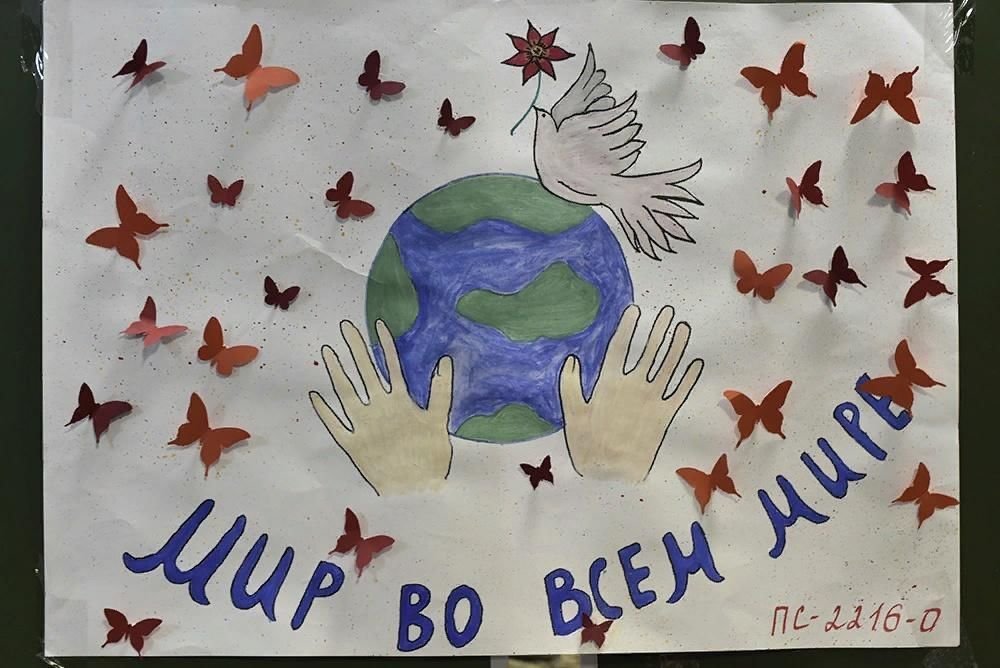 МИР ВО ВСЕМ МИРЕ
ПС-2216-О